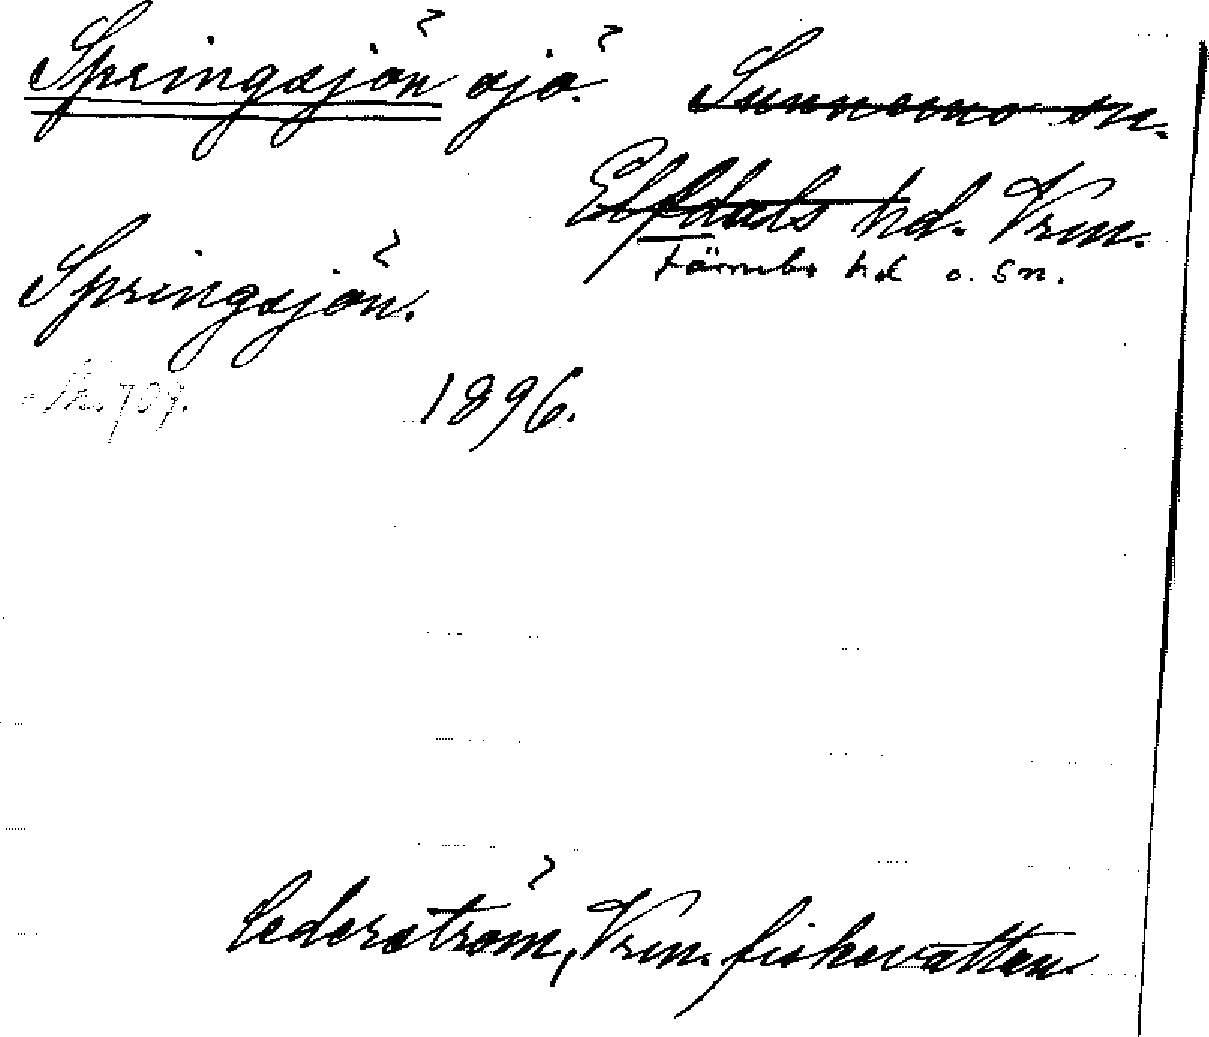 Springsjön sjö. Sunnemo sn.
Elfdals hd. Vrm.
Färnebo hd o. sn.
Springsjön.
N:o 707.
1896.
Cederström, Vrm. fiskevatten.